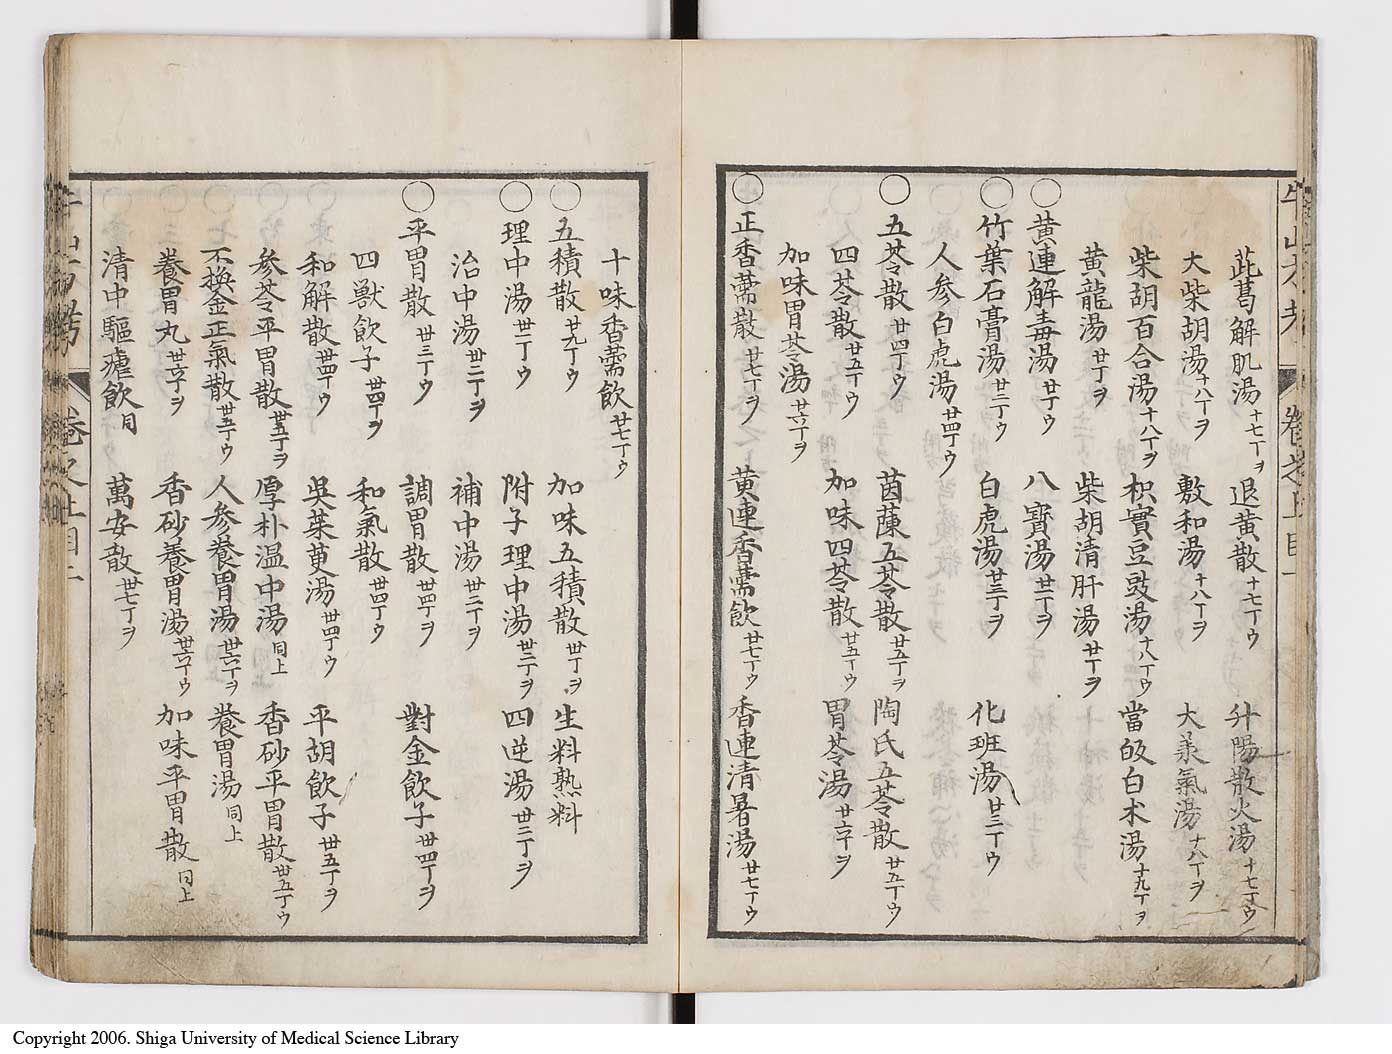 茈葛解肌湯十七丁ヲ 退黄散十七丁ウ 升陽散火湯十七丁ウ
大柴胡湯十八丁ヲ 敷和湯十八丁ヲ 大羗氣湯十八丁ヲ
柴胡百合湯十八丁ヲ 枳實豆豉湯十八丁ウ 當皈白朮湯十九丁ヲ
黄龍湯廿丁ヲ 柴胡清肝湯廿丁ヲ
○黄連解毒湯廿丁ウ 八寳湯廿一丁ヲ
○竹葉石膏湯廿二丁ウ 白虎湯廿三丁ヲ 化斑湯廿三丁ウ
人参白虎湯廿四丁ウ
○五苓散廿四丁ウ 茵蔯五苓散廿五丁ヲ 陶氏五苓散廿五丁ウ
四苓散廿五丁ウ 加味四苓散廿五丁ウ 胃苓湯廿六丁ヲ
加味胃苓湯廿六丁ヲ
○正香薷散廿七丁ヲ 黄連香薷飲廿七丁ウ 香連清暑湯廿七丁ウ
十味香薷飲廿七丁ウ
○五積散廿九丁ウ 加味五積散丗丁ヲ 生料熟料
○理中湯丗一丁ウ 附子理中湯丗二丁ウ 四逆湯丗二丁ヲ
治中湯丗二丁ヲ 補中湯丗二丁ヲ
○平胃散丗三丁ウ 調胃散丗四丁ヲ 對金飲子丗四丁ヲ
四獸飲子丗四丁ヲ 和氣散丗四丁ウ
和解散丗四丁ウ 吳茱萸湯丗四丁ウ 平胡飲子丗五丁ヲ
参苓平胃散丗五丁ヲ 厚朴温中湯同上 香砂平胃散丗五丁ウ
不換金正氣散丗五丁ウ 人参養胃湯丗六丁ヲ 養胃湯同上
養胃丸丗六丁ヲ 香砂養胃湯丗六丁ウ 加味平胃散同上
清中驅瘧飲同 萬安散丗七丁ヲ
Copyright 2006. Shiga University of Medical Science Library